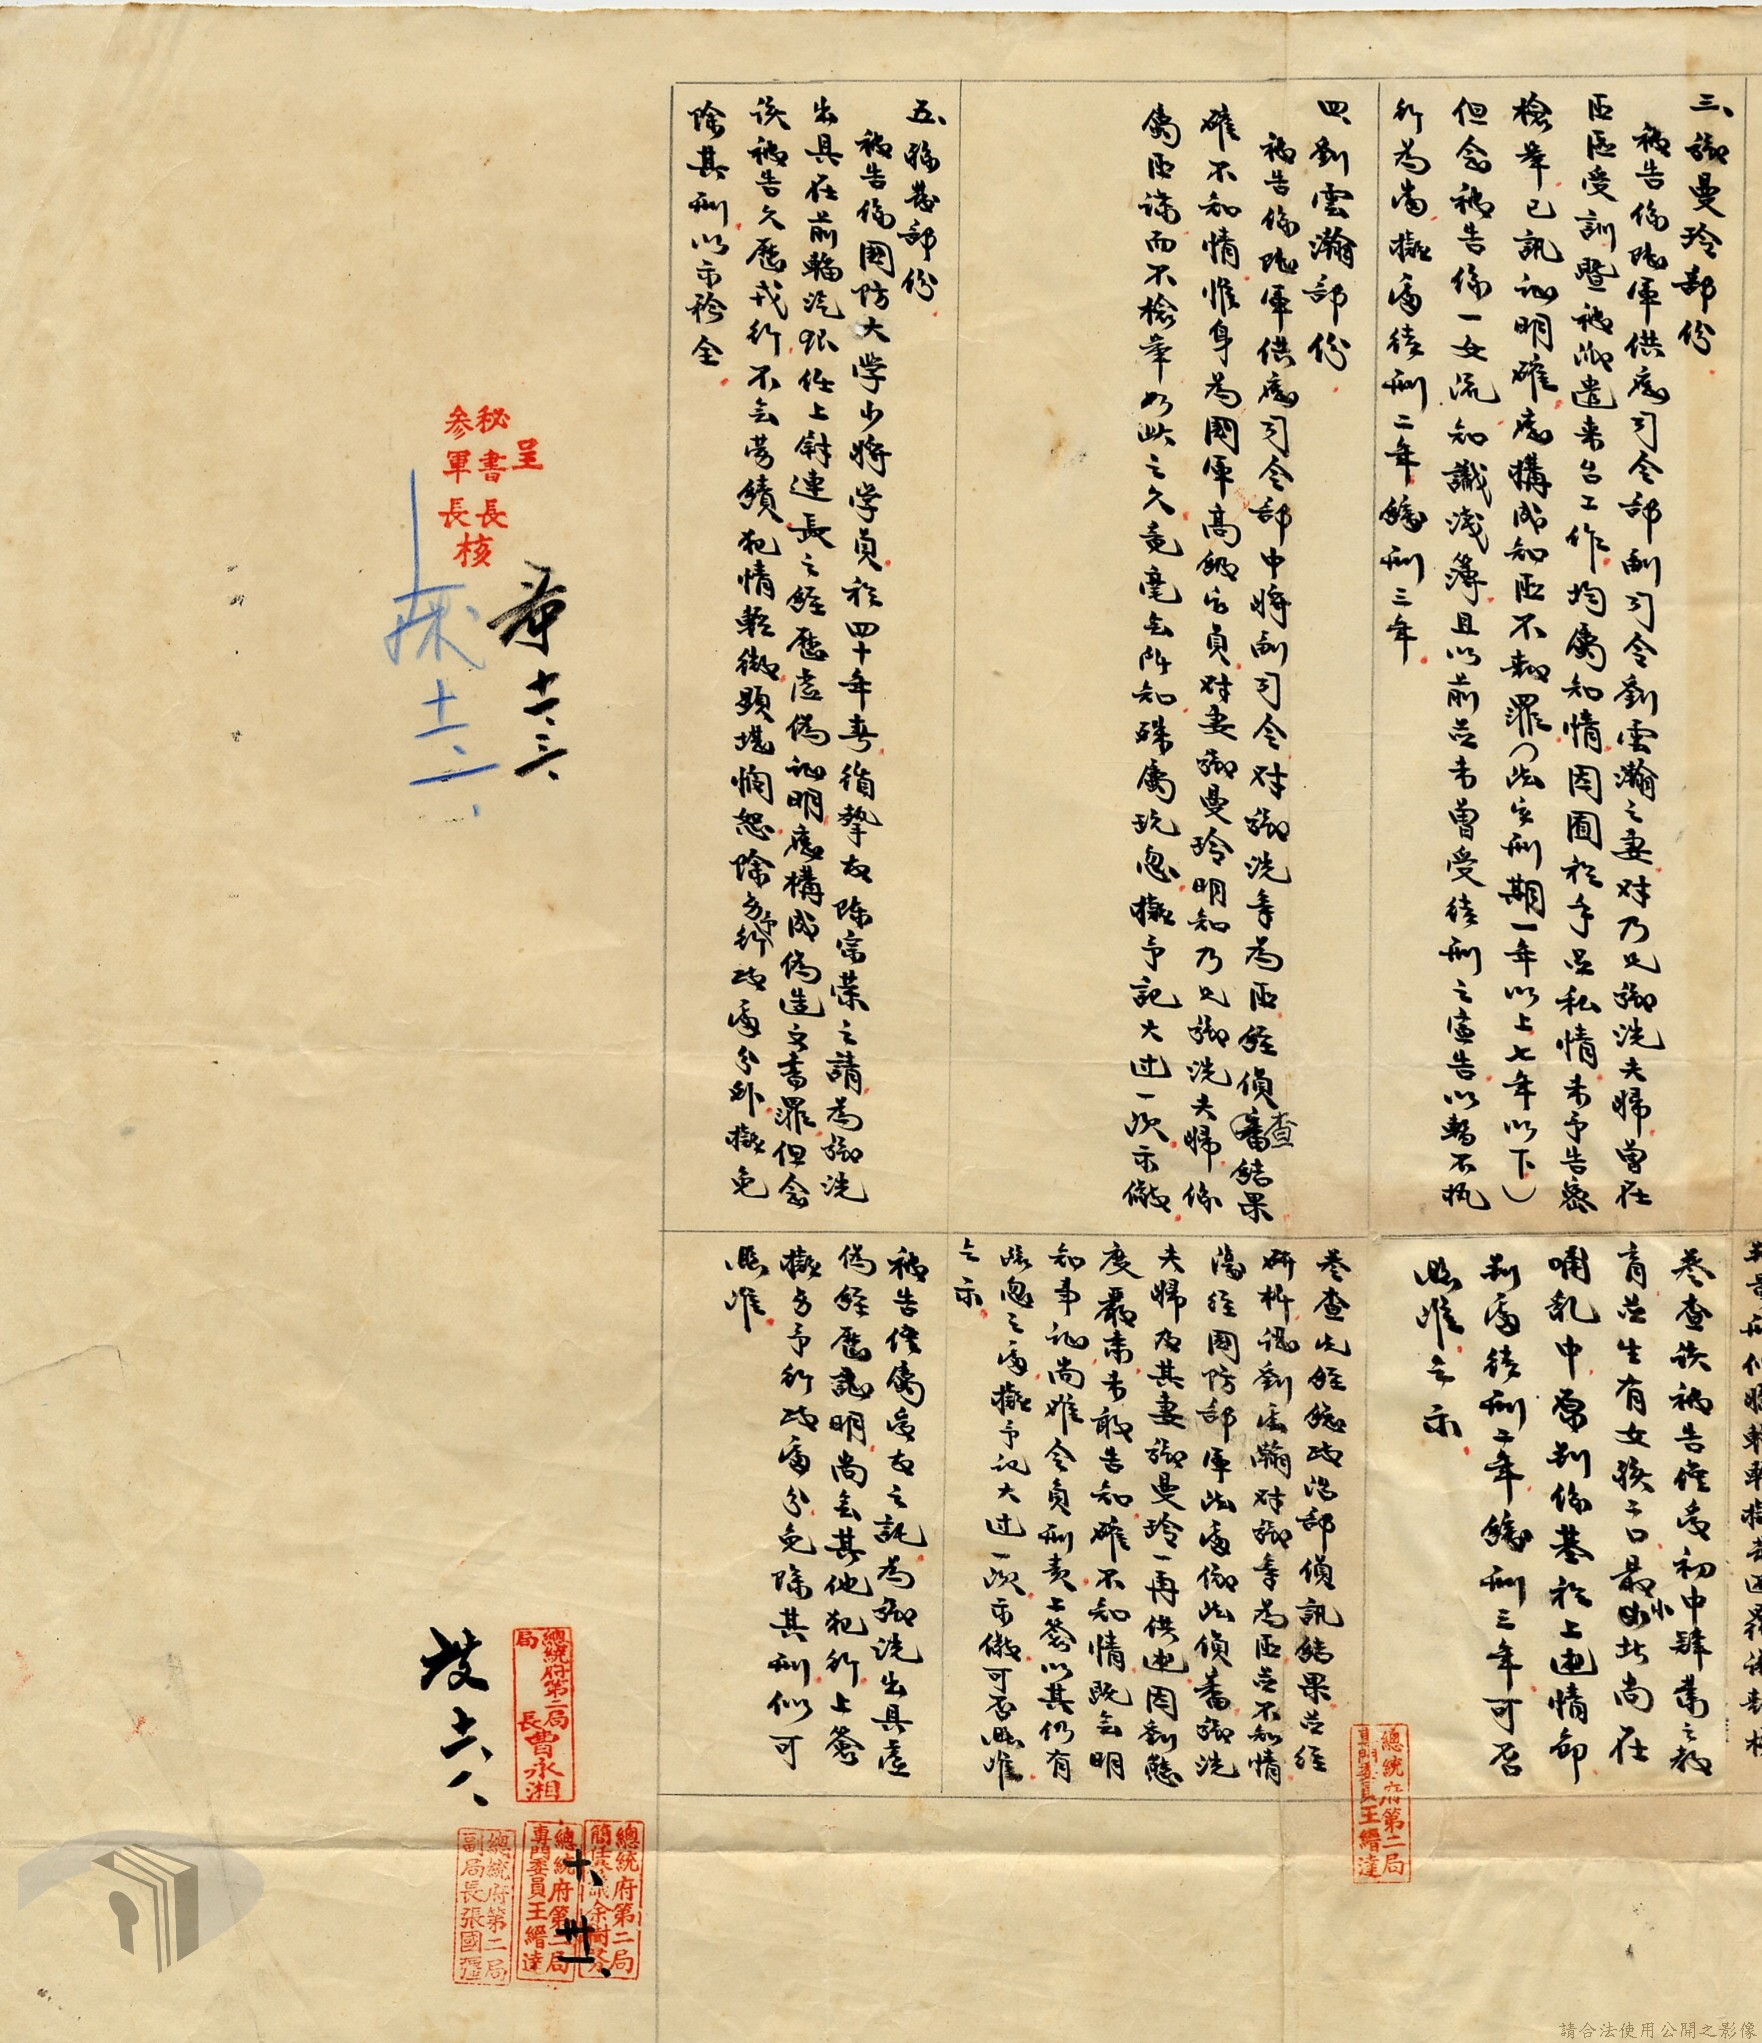 三、鄉曼玲部份
被告係陸軍供應司令部副司令劉雲瀚之妻对乃兄鄉洗夫婦曾在
匪區受訓暨被派遣来台工作均屬知情因囿於手足私情未予告密
檢举已訊証明確應構成知匪不報罪(法定刑期一年以上七年以下)
但念被告係一女流知識淺薄且以前並未曾受徒刑之宣告以暫不执
行为當擬處徒刑二年緩刑三年
四、劉雲瀚部份
被告係陸軍供應司令部中將副司令对鄉洗等为匪經偵查結果
確不知情惟身为國軍高級官員对妻鄉曼玲明知乃兄鄉洗夫婦係
屬匪諜而不檢举如此之久竟毫無所知殊屬玩忽擬予記大过一次示儆
五、部份
被告係國防大学少將学員於四十年春循摯友陈宗荣之請为鄉洗
出具在前輪汽銀任上尉連長之經歷虛偽証明應構成偽造文書罪但念
该被告久歷戎行不無劳績犯情輕微顕堪憫恕除另予行政處分外擬免
除其刑以示矜全
卷查该被告僅受初中肄業之教
育並生有女孩三口最小如此尚在
哺乳中原判係基於上述情節
判處徒刑二年緩刑三年可否
照准乞示
卷查先經總政治部偵訊結果並經
研析認劉雲瀚对鄉等为匪並不知情
復經國防部軍法處偵審鄉洗
夫婦及其妻鄉曼玲一再供述因劉態
度嚴肅未敢告知確不知情既無明
知事証尚难令負刑責上簽以其仍有
疏忽之處擬予記大过一次示儆可否照准
乞示
被告僅屬受友之託为鄉洗出具虛
偽經歷証明尚無其他犯行上簽
擬另予行政處分免除其刑似可
照准
呈
秘書長
參軍長
核
十一、三、
十一、一、
十六、八、
總統府第二局
局長曹永湘
總統府第二局
副局長張國疆
總統府第二局
專門委員王縉達
總統府第二局
十、卅一、
總統府第二局
專門委員王縉達
請合法使用公開之影像